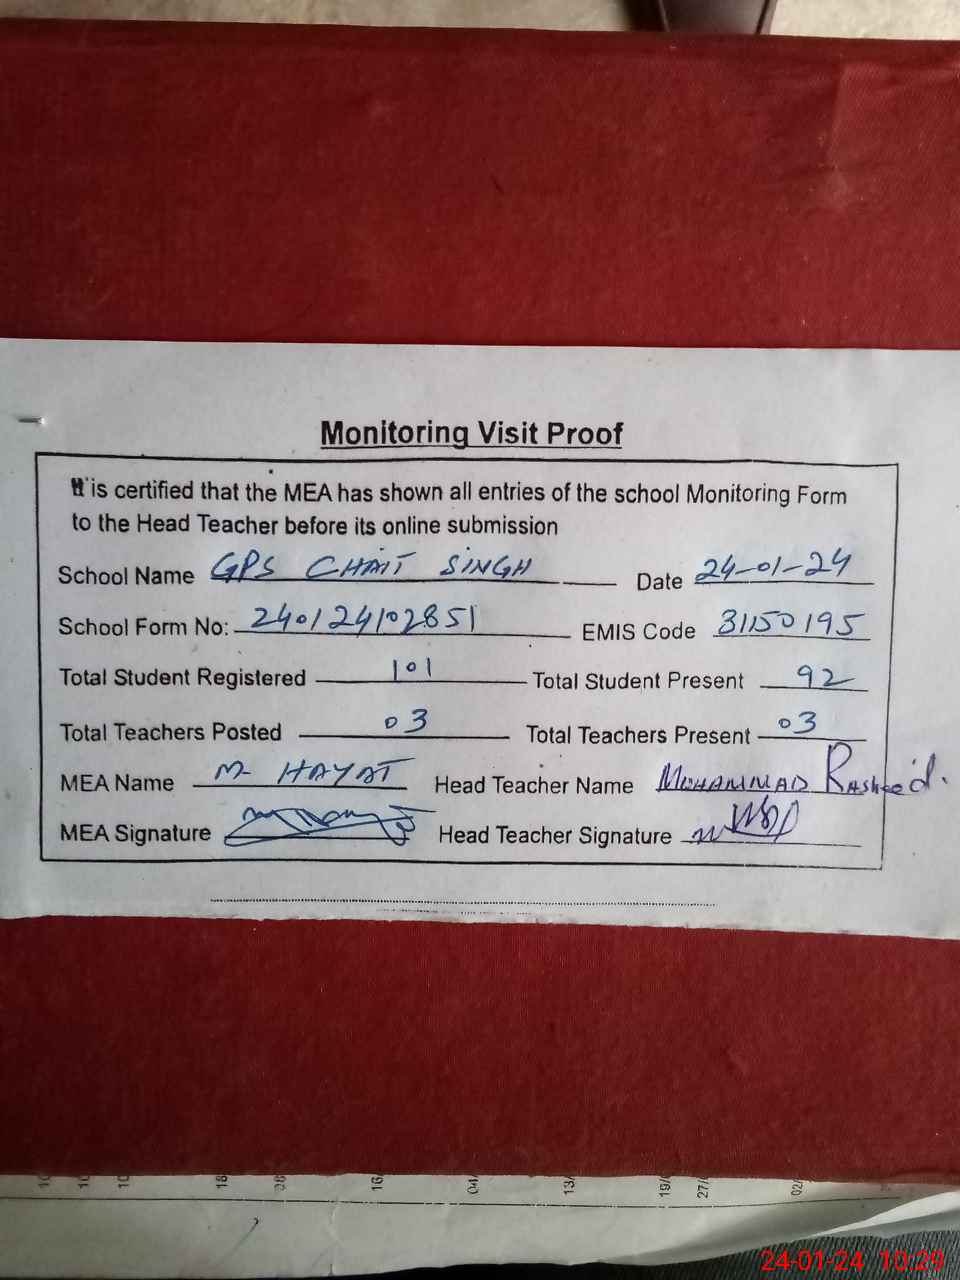 Monitoring Visit Proof
It is certified that the MEA has shown all entries of the school Monitoring Form
to the Head Teacher before its online submission
School Name GPS CHAIT SINGH Date 24-01-24
School Form No: 240124102851 EMIS Code 31150195
Total Student Registered 101 Total Student Present 92
Total Teachers Posted 03 Total Teachers Present 03
MEA Name M. HAYAT Head Teacher Name MUHAMMAD Rasheed.
MEA Signature Head Teacher Signature
10 10 10 18 28 16/ 04/ 13/ 19/ 27/ 02/
24-01-24 10:29